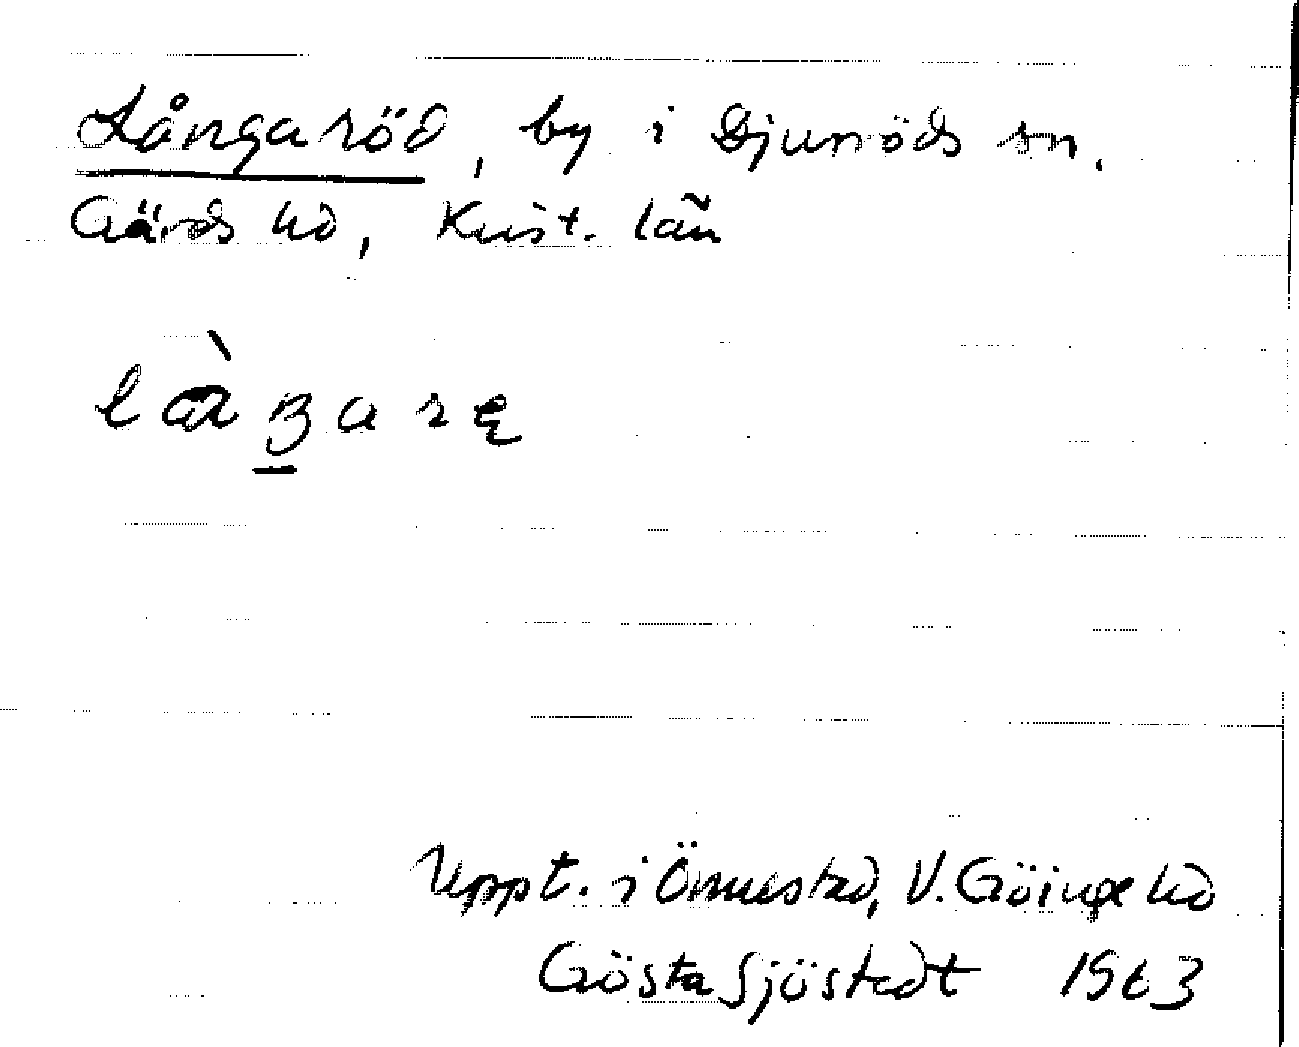 Långaröd, by i Djurröds sn.
Gärds hd, Krist. län
Uppt. i Önnestad, V. Göinge hd
Gösta Sjöstedt 1963